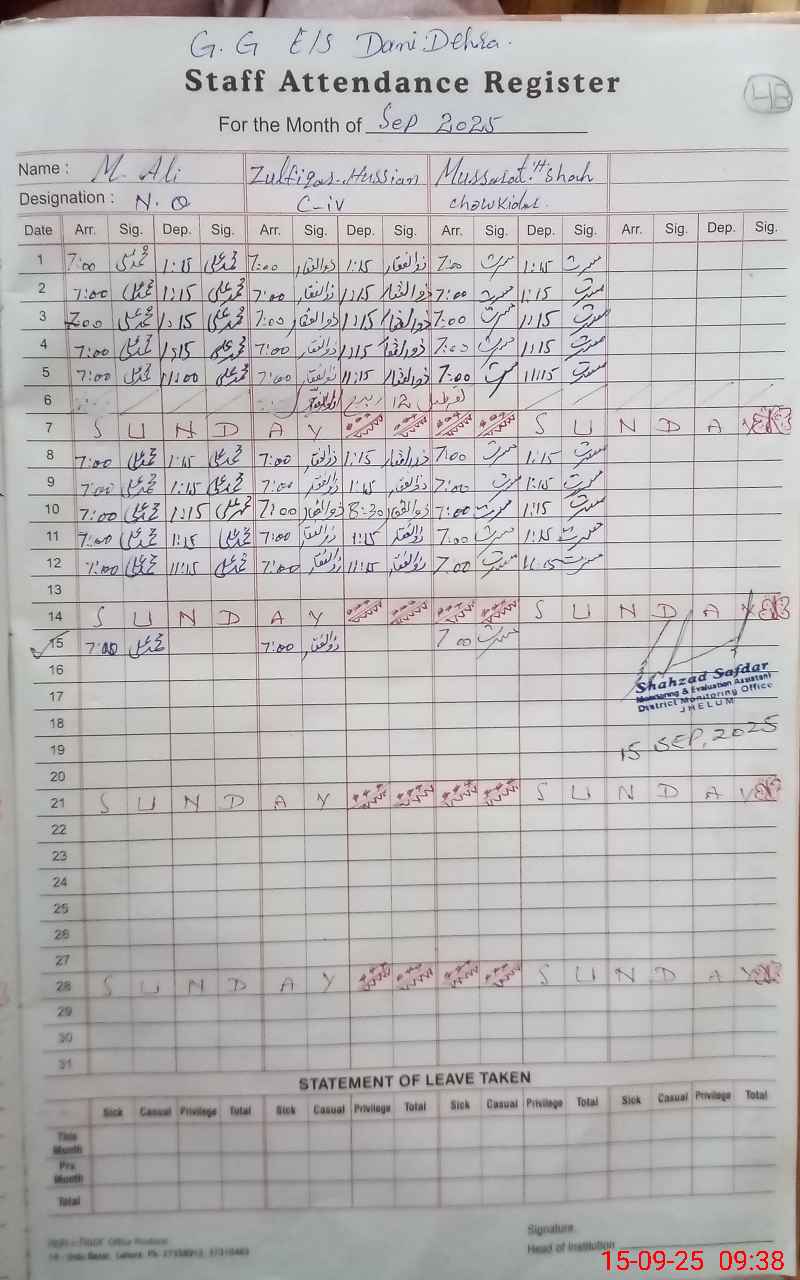 G. G E/S Dani Dehra.
Staff Attendance Register
4B
For the Month of Sep 2025
Name : M. Ali Zulfiqar Hussian Mussarat H Shah
Designation : N.Q C-iv Chowkidar.
Date Arr. Sig. Dep. Sig. Arr. Sig. Dep. Sig. Arr. Sig. Dep. Sig. Arr. Sig. Dep. Sig.
1 7:00 محمد علی 1:15 محمد علی 7:00 ذوالفقار 1:15 ذوالفقار 7:00 مسرت 1:15 مسرت
2 7:00 محمد علی 1:15 محمد علی 7:00 ذوالفقار 1:15 ذوالفقار 7:00 مسرت 1:15 مسرت
3 7:00 محمد علی 1:15 محمد علی 7:00 ذوالفقار 1:15 ذوالفقار 7:00 مسرت 1:15 مسرت
4 7:00 محمد علی 1:15 محمد علی 7:00 ذوالفقار 1:15 ذوالفقار 7:00 مسرت 1:15 مسرت
5 7:00 محمد علی 11:00 محمد علی 7:00 ذوالفقار 11:15 ذوالفقار 7:00 مسرت 11:15 مسرت
6 تعطیل 12 ربیع
7 S U N D A Y S U N D A Y
8 7:00 محمد علی 1:15 محمد علی 7:00 ذوالفقار 1:15 ذوالفقار 7:00 مسرت 1:15 مسرت
9 7:00 محمد علی 1:15 محمد علی 7:00 ذوالفقار 1:15 ذوالفقار 7:00 مسرت 1:15 مسرت
10 7:00 محمد علی 1:15 محمد علی 7:00 ذوالفقار 8:30 ذوالفقار 7:00 مسرت 1:15 مسرت
11 7:00 محمد علی 1:15 محمد علی 7:00 ذوالفقار 1:15 ذوالفقار 7:00 مسرت 1:15 مسرت
12 7:00 محمد علی 11:15 محمد علی 7:00 ذوالفقار 11:15 ذوالفقار 7:00 مسرت 11:15 مسرت
13
14 S U N D A Y S U N D A Y
15 7:00 محمد علی 7:00 ذوالفقار 7:00 مسرت
16
Shahzad Safdar
Monitoring & Evaluation Assistant
District Monitoring Office
JHELUM
17
18
15 SEP, 2025
19
20
21 S U N D A Y S U N D A Y
22
23
24
25
26
27
28 S U N D A Y S U N D A Y
29
30
31
STATEMENT OF LEAVE TAKEN
Sick Casual Privilege Total Sick Casual Privilege Total Sick Casual Privilege Total Sick Casual Privilege Total
This Month
Pre Month
Total
Signature.
Head of Institution
15-09-25 09:38